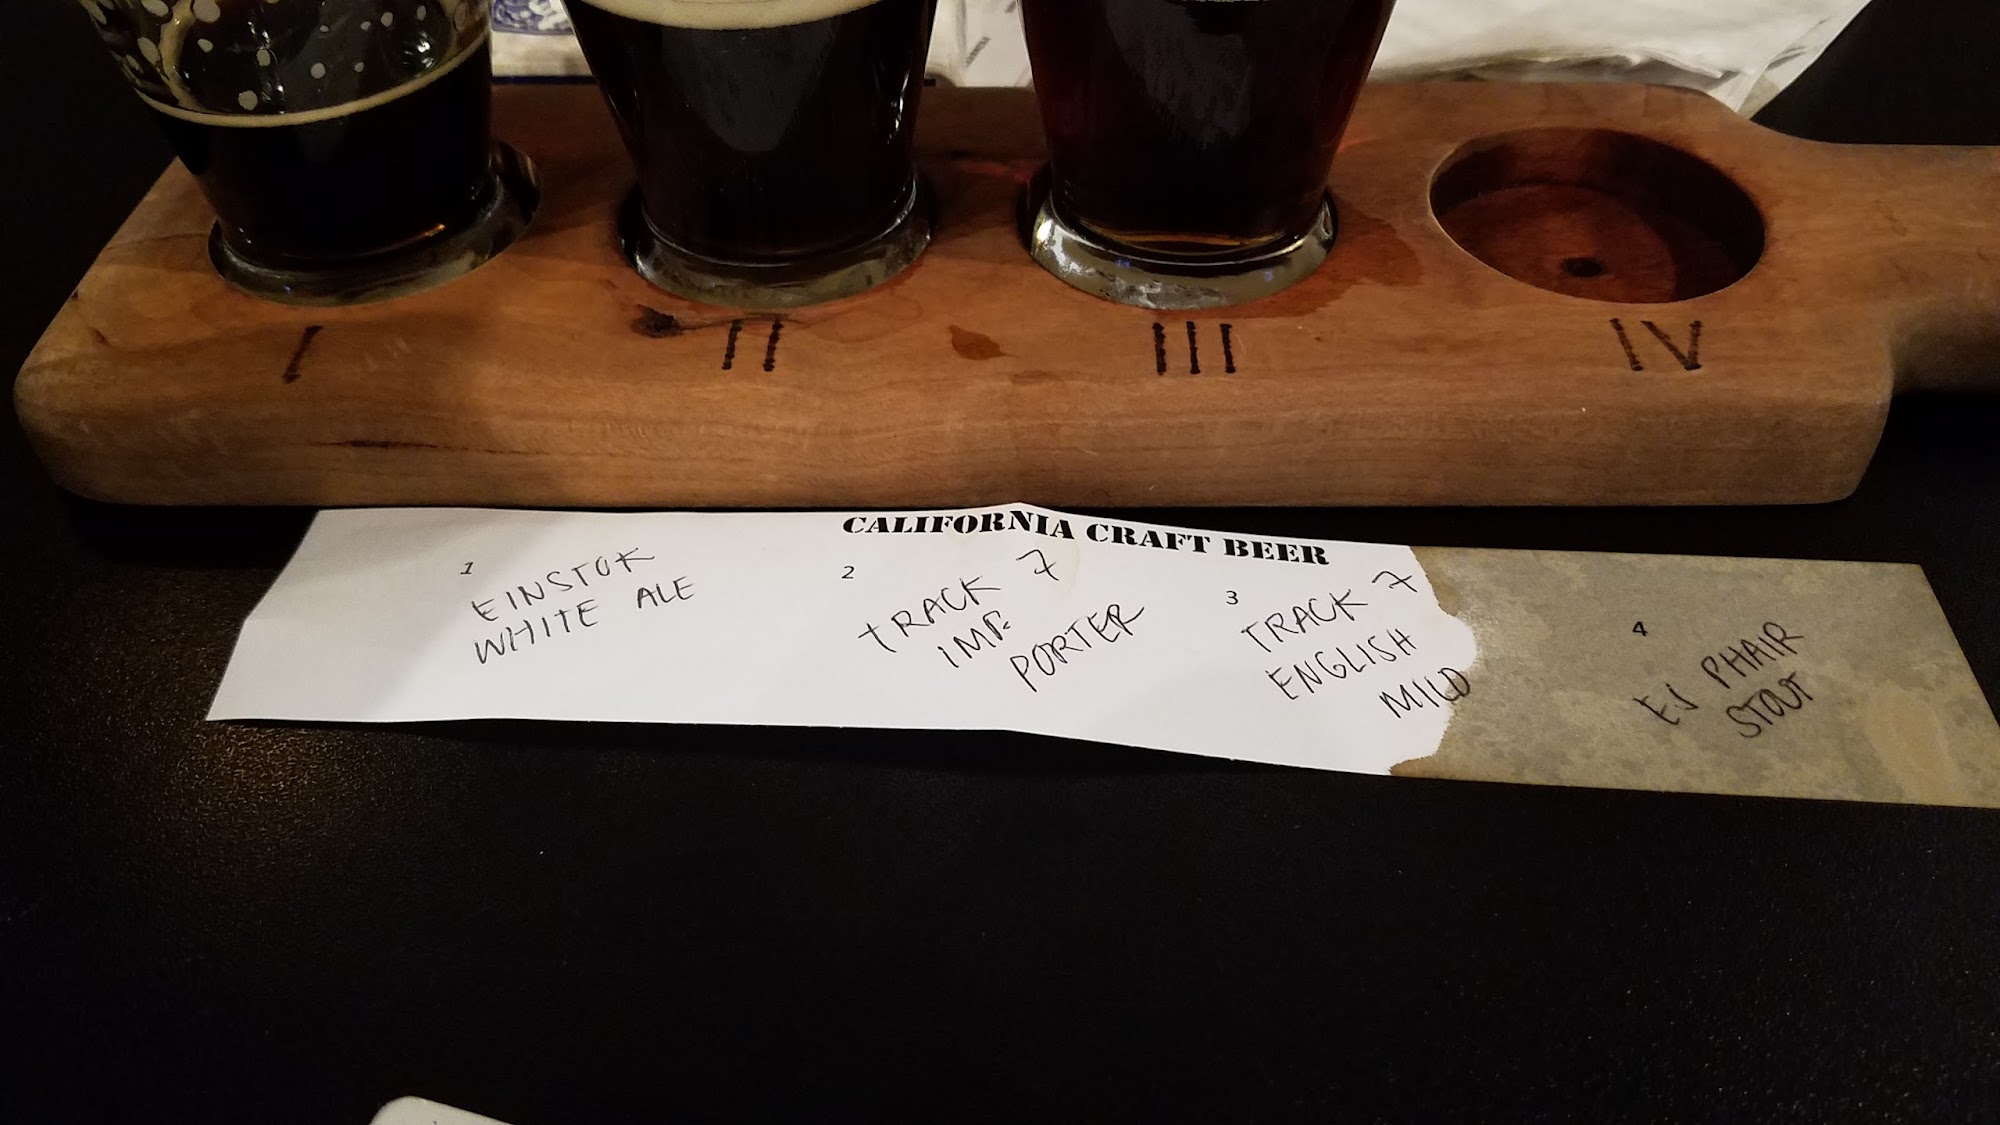 I
II
III
IV
CALIFORNIA CRAFT BEER
1
EINSTOK
WHITE ALE
2
TRACK 7
IMP.
PORTER
3
TRACK 7
ENGLISH
MILD
4
EJ PHAIR
STOUT